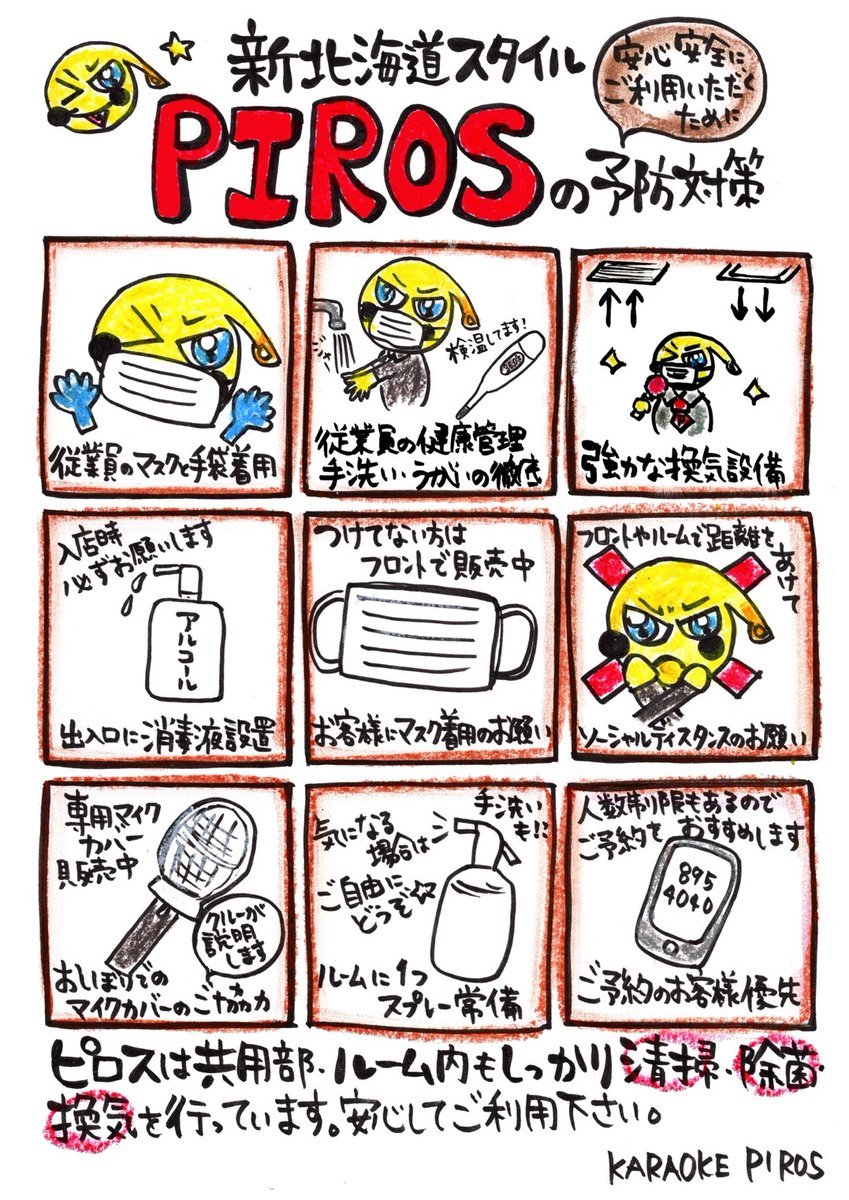 新北海道スタイル
安心安全に、
ご利用いただく
ために
PIROSの予防対策
従業員のマスクと手袋着用
検温してます!
従業員の健康管理
手洗い・うがいの徹底
強力な換気設備
入店時
必ずお願いします
アルコール
出入口に消毒液設置
つけてない方は
フロントで販売中
お客様にマスク着用のお願い
フロントやルームで距離を
あけて
ソーシャルディスタンスのお願い
専用マイク
カバー
販売中
クルーが
説明
します
おしぼりでの
マイクカバーのご協力
手洗い
も!?
気になる
場合は
ご自由に
どうぞ☆
ルームに1つ
スプレー常備
人数制限もあるので
ご予約をおすすめします
895
4040
ご予約のお客様優先
ピロスは共用部、ルーム内もしっかり清掃、除菌、
換気を行っています。安心してご利用下さい。
KARAOKE PIROS